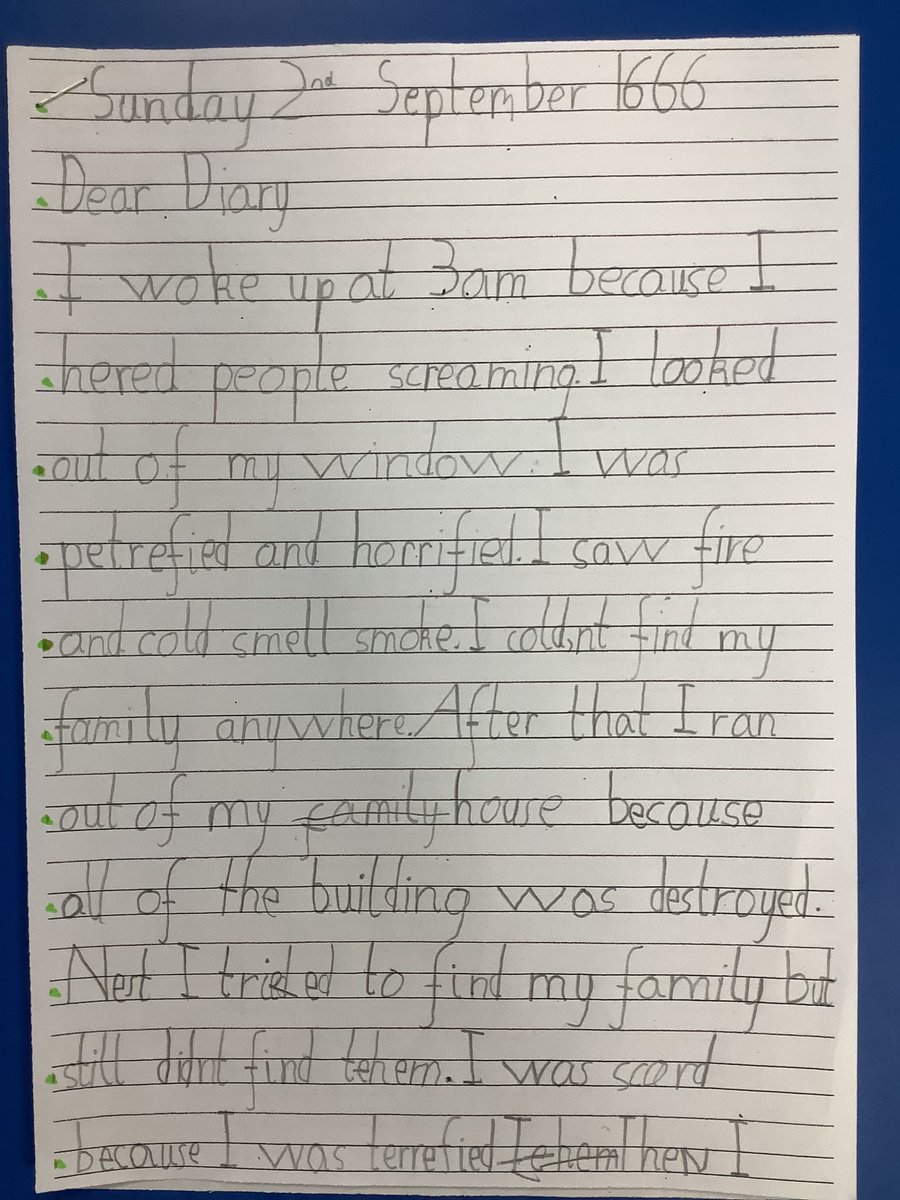 Sunday 2nd September 1666
Dear Diary
I woke up at 3am because I
hered people screaming. I looked
out of my window. I was
petrefied and horrified. I saw fire
and cold smell smoke. I coldnt find my
family anywhere. After that I ran
out of my family house because
all of the building was destroyed.
Nest I tried to find my family but
still didnt find tehem. I was scord
because I was terrefied Then I